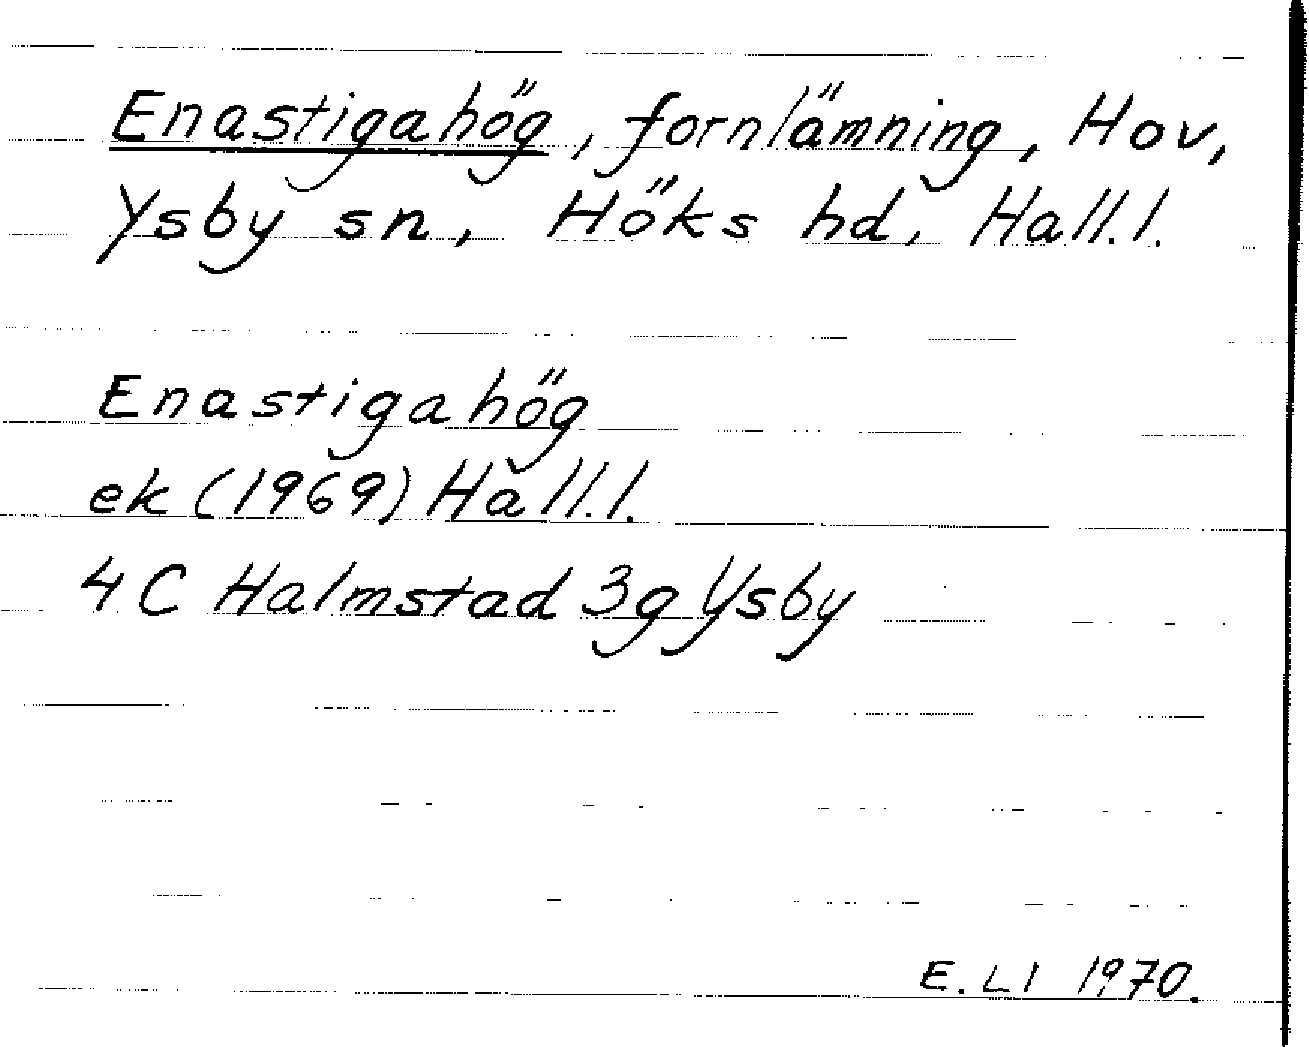 Enastigahög, fornlämning, Hov,
Ysby sn, Höks hd, Hall.l.
Enastigahög
ek (1969) Hall.l.
4C Halmstad 3g Ysby
E. LI 1970.